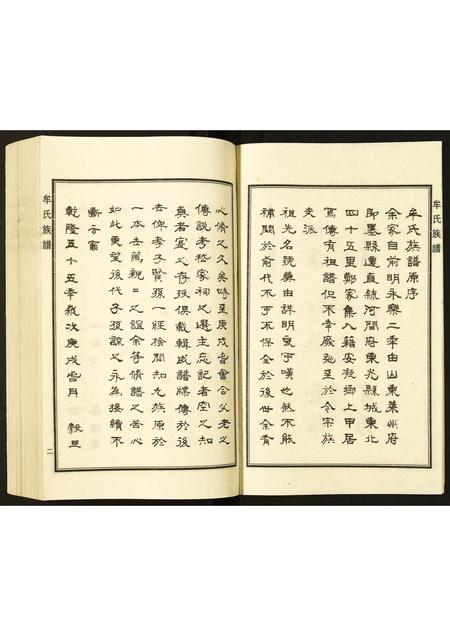 牟氏族譜
牟氏族譜原序
余家自前明永樂二年由山東萊州府
即墨縣遷直綫河間府東光縣城東北
四十五里鄭家集入籍安凝鄉上甲居
焉傳有祖譜但不幸廢弛至於今宗族
支派
祖先名號莫由詳明良可嘆也然不能
補闕於前代不可不保全於後世余有
心脩之久矣時至庚戌會合父老之
傳說考嵇家祠之選主忘記者空之知
真者寔之存歿俱載輯成譜牒傳於後
世俾孝子賢孫一經檢閱知九族原於
一本世萬親之誼余等脩譜之苦心
如此更望後代子孫諒之永為接續不
斷云爾
乾隆五十五年歲次庚戌月 穀旦
牟氏族譜
二